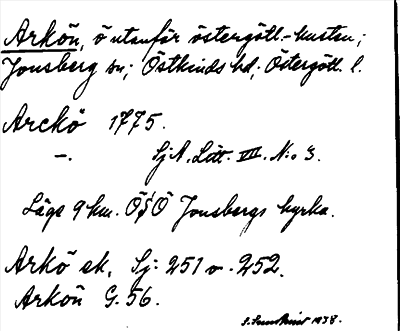 Arkön, ö utanför östergötl.-kusten;
Jonsberg sn; Östkinds hd; Östergötl. l.
Arckö 1775.
—. SjA. Litt. VII. N:o 3.
Läge 9 km. ÖSÖ Jonsbergs kyrka.
Arkö ek, Sj: 251 o. 252.
Arkön G. 56.
1938.